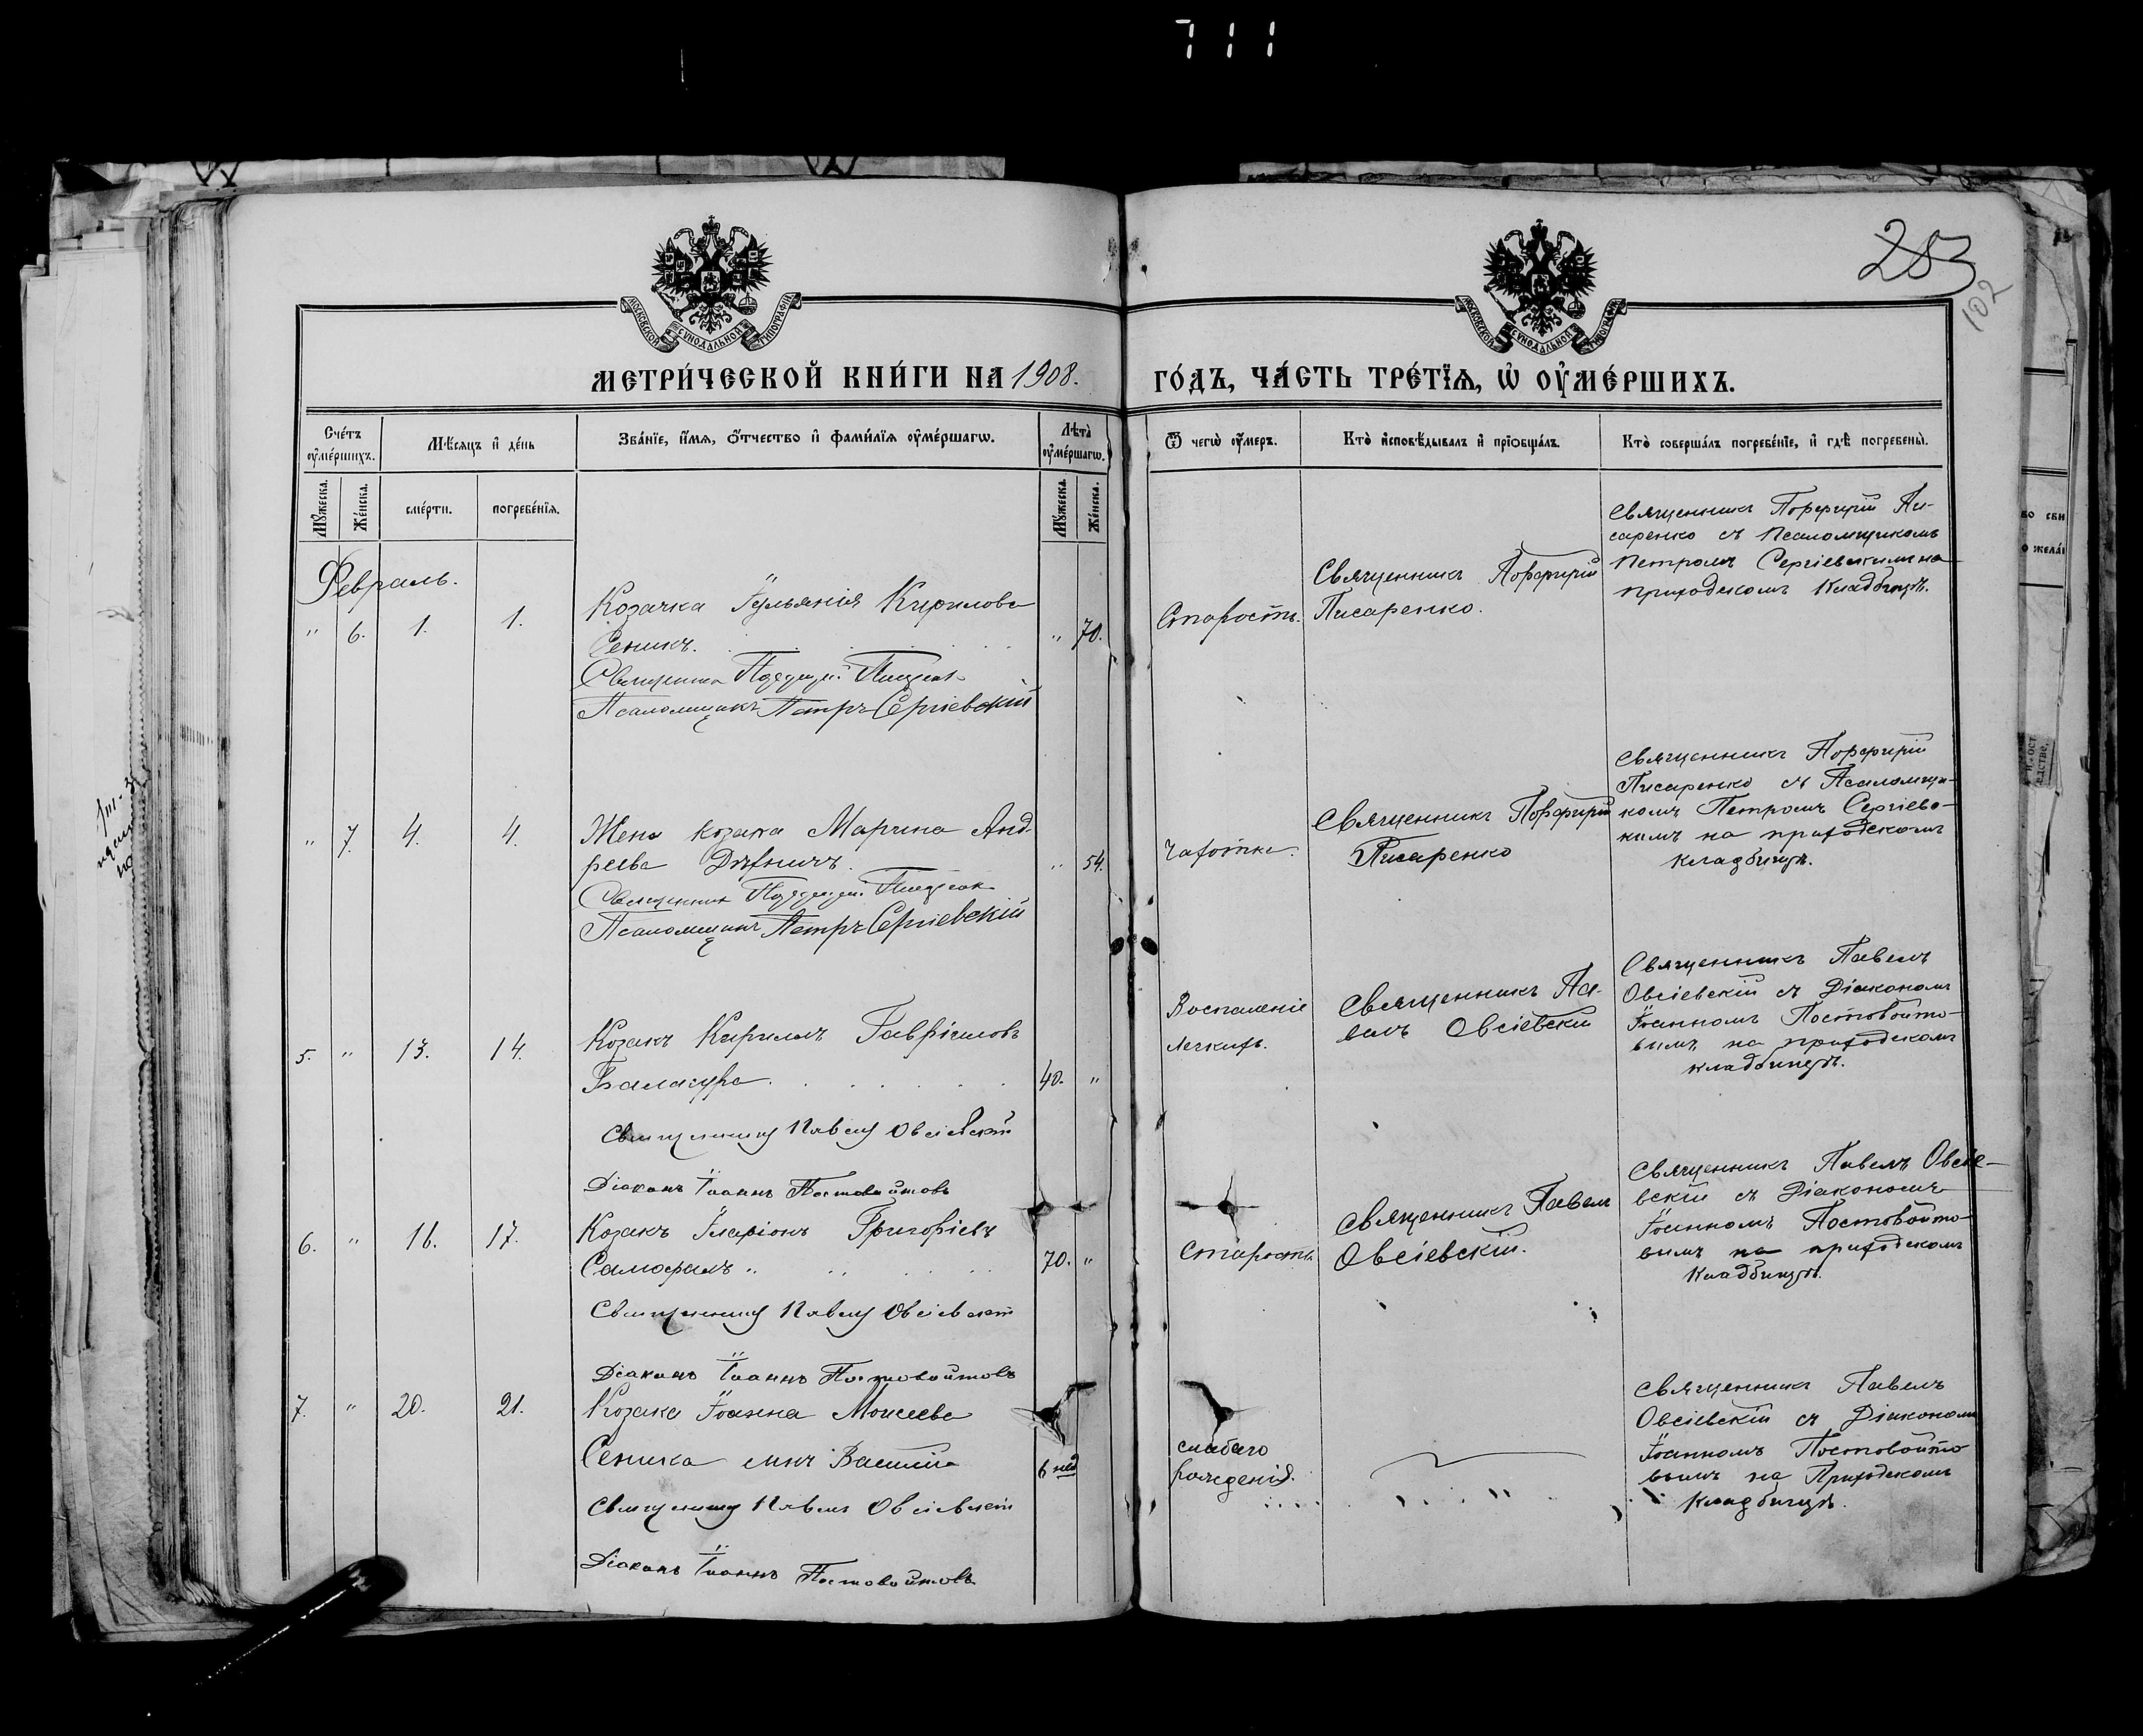 711
283
102
МОСКОВСКОЙ СѴНОДАЛЬНОЙ ТИПОГРАФІИ
МОСКОВСКОЙ СѴНОДАЛЬНОЙ ТИПОГРАФІИ
МЕТРИ́ЧЕСКОЙ КНИ́ГИ НА 1908. ГО́ДЪ, ЧА́СТЬ ТРЕ́ТЇѦ, Ѡ҆ ОУ҆МЕ́РШИХЪ.
Сче́тъ оу҆ме́ршихъ.
Мѣ́сяцъ и҆ де́нь
Зва́нїе, и҆́мѧ, ѻ҆́тчество и҆ фами́лїѧ оу҆ме́ршагѡ.
Лѣ́та оу҆ме́ршагѡ.
Ѿ чегѡ̀ оу҆́меръ.
Кто̀ и҆сповѣ́дывалъ и҆ прїѡбща́лъ.
Кто̀ соверша́лъ погребе́нїе, и҆ гдѣ̀ погребены̀.
Мꙋ́жеска.
Же́нска.
сме́рти.
погребе́нїѧ.
Мꙋ́жеска.
Же́нска.
Февраль.
" 6. 1. 1.
Козачка Іульянія Кирилова
Сеникъ.
" 70.
Священникъ
Псаломщикъ Петръ Сергіевскій
Старость.
Священникъ Порфирій
Писаренко.
Священникъ Порфирій Пи-
саренко съ Псаломщикомъ
Петромъ Сергіевскимъ на
приходскомъ кладбищѣ.
" 7. 4. 4.
Жена козака Марина Анд-
реева
" 54.
Священникъ
Псаломщикъ Петръ Сергіевскій
Чахотка.
Священникъ Порфирій
Писаренко
Священникъ Порфирій
Писаренко съ Псаломщи-
комъ Петромъ Сергіевс-
кимъ на приходскомъ
кладбищѣ.
5. " 13. 14.
Козакъ Кирилъ Гавріиловъ
Балацура
40. "
Священникъ Павелъ Овсіевскій
Діаконъ Іоаннъ Постовойтовъ
Воспаленіе
легкихъ.
Священникъ Па-
велъ Овсіевскій
Священникъ Павелъ
Овсіевскій съ Діакономъ
Іоанномъ Постовойто-
вымъ на приходскомъ
кладбищѣ.
6. " 16. 17.
Козакъ Иларіонъ Григоріевъ
Самофалъ "
70. "
Священникъ Павелъ Овсіевскій
Діаконъ Іоаннъ Постовойтовъ
Старость.
Священникъ Павелъ
Овсіевскій.
Священникъ Павелъ Овсіе-
вскій съ Діакономъ
Іоанномъ Постовойто-
вымъ на приходскомъ
кладбищѣ.
7. " 20. 21.
Козака Іоанна Моисеева
Сеника сынъ Василій
6 нед
Священникъ Павелъ Овсіевскій
Діаконъ Іоаннъ Постовойтовъ
слабаго
рожденія.
Священникъ Павелъ
Овсіевскій съ Діакономъ
Іоанномъ Постовойто
вымъ на Приходскомъ
кладбищѣ.